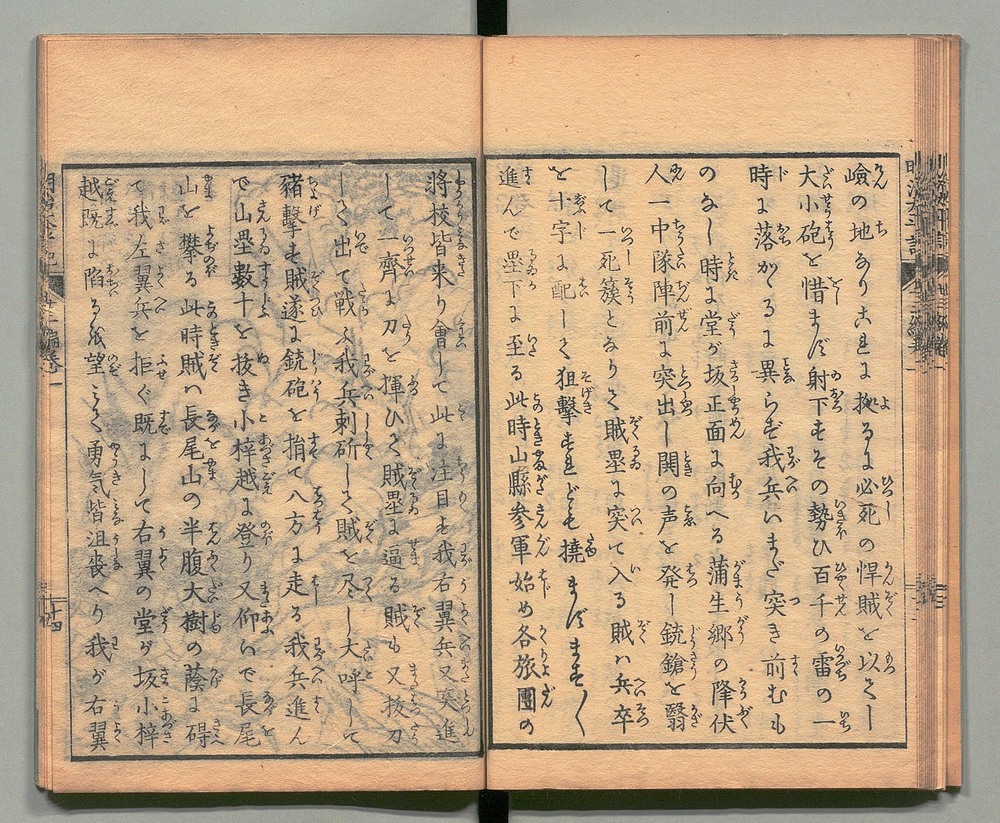 嶮の地なり古主に拠るに必死の悍賊を以てし
大小砲を惜まず射下すその勢ひ百千の雷の一
時に落かくるに異らず我兵いまだ突き前むも
のなし時に堂が坂正面に向へる蒲生郷の降伏
人一中隊陣前に突出し鬨の声を発し銃鎗を翳
して一死簇となりて賊塁に突て入る賊ハ兵卒
を十字に配して狙撃すれども撓まずますく
進んで塁下に至る此時山縣参軍始め各旅團の
將校皆来り會して此に注目す我右翼兵又突進
して一齊に刀を揮ひて賊塁に逼る賊も又抜刀
して出て戦ふ我兵刺斫して賊を尽し大呼して
豬撃す賊遂に銃砲を捐て八方に走る我兵進ん
で山塁數十を抜き小梓越に登り又仰いで長尾
山を攀る此時賊ハ長尾山の半腹大樹の蔭に碍
て我左翼兵を拒ぐ既にして右翼の堂が坂小梓
越既に陥るを望ミて勇気皆沮喪へり我が右翼
十四